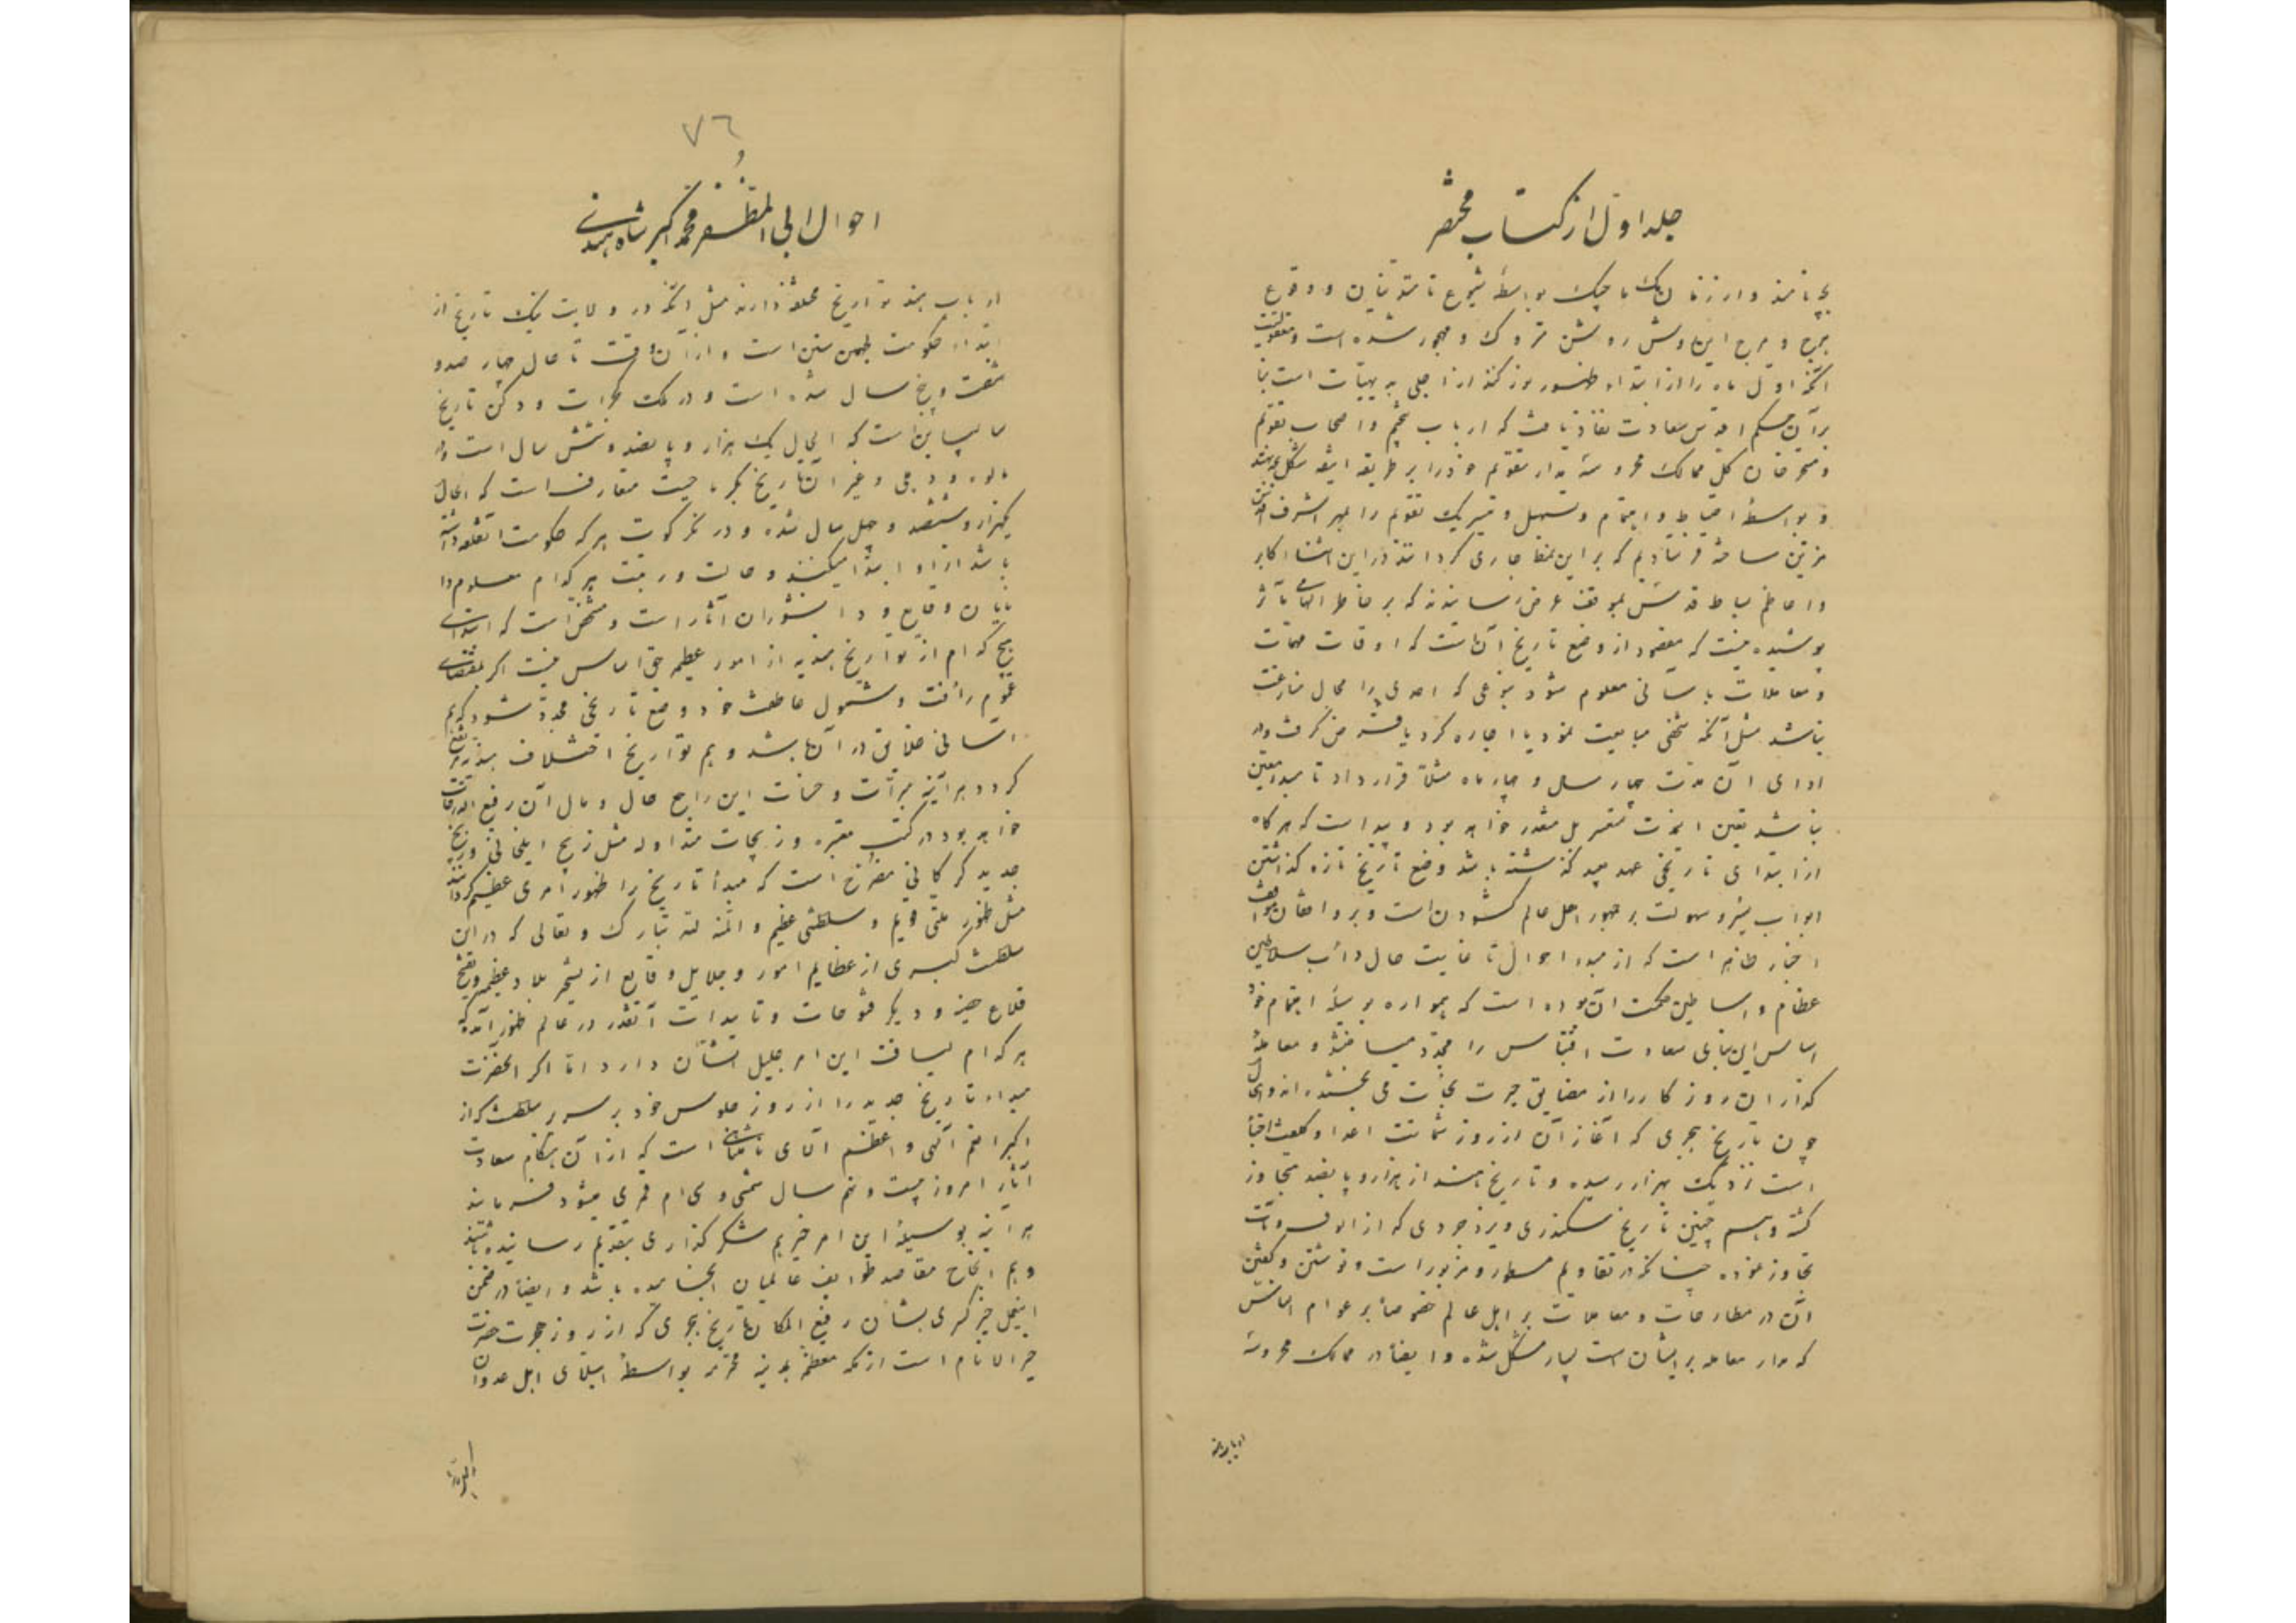 جلد اول از کتاب مختصر
و هرج و مرج این روش روشن متروک و مهجور شده است
آنکه اول ماه را از ابتداء
بر آن حکم اقدس سعادت نفاذ یافت که ارباب تنجیم و اصحاب تقویم
و مستخرجان کل ممالک محروسه مدار تقویم خود را بر طریقه
و بواسطهٔ احتیاط و اهتمام و تسهیل یک تقویم را بمهر اشرف
مزین ساخته فرستادیم که بر این نمط جاری گردانند در این اثنا اکابر
و اعاظم بساط قدس بموقف عرض رسانیدند که بر خاطر الهامی مآثر
پوشیده نیست که مقصود از وضع تاریخ آنست که اوقات مهمات
و معاملات بآسانی معلوم شود بنوعی که احدی را مجال منازعت
نباشد مثل آنکه شخصی مبایعت نمود یا اجاره کرد یا قرض گرفت و در
ادای آن مدت چهار سال و چهار ماه مثلاً قرار داد تا مبدأ معین
نباشد تعین انمدت متعسر بل متعذر خواهد بود و پیداست که هرگاه
از ابتدای تاریخی عهد بعید گذشته باشد وضع تاریخ تازه گذاشتن
ابواب یسر و سهولت بر جمهور اهل عالم گشودن است و بر واقفان مواقف
اخبار ظاهر است که از مبدء احوال تا غایت حال دأب سلاطین
عظام و اساطین حکمت آن بوده است که همواره بوسیلهٔ اهتمام خود
اساس این بنای سعادت اقتباس را مجدد میساختند و معاملهٔ
گذاران روزگار را از مضایق حیرت نجات می‌بخشیدند
چون تاریخ هجری که آغاز آن از روز شماتت اعدا و کلفت احبا
است نزدیک بهزار رسیده و تاریخ هند از هزار و پانصد متجاوز
گشته و همچنین تاریخ سکندری و یزدجردی که از
تجاوز نموده چنانکه در تقاویم مسطور و مزبور است و نوشتن و گفتن
آن در مطارحات و معاملات بر اهل عالم خصوصاً بر عوام الناس
که مدار معامله بر ایشان است بسیار مشکل شده و ایضاً در ممالک محروسه
۷۶
احوال ابی المظفر محمد اکبر شاه هندی
ارباب هند تواریخ مختلفه دارند مثل آنکه در ولایت بنگ تاریخ از
ابتداء حکومت لچمن سین است و از آن وقت تا حال چهار صد و
شصت و پنج سال شده است و در ملک گجرات و دکن تاریخ
سالباهن است که الحال یک هزار و پانصد و شش سال است و در
مالوه و دهلی و غیر آن تاریخ بکرماجیت متعارف است که الحال
یکهزار و ششصد و چهل سال شده و در نگرکوت هر که حکومت آنقلعه داشته
باشد از او ابتدا میکنند و حالت و رتبت هر کدام معلوم
وقایع و دانشوران آثار است و مشخص است که ابتدای
هیچ کدام از تواریخ هندیه از امور عظیمه حق اساس نیست اگر بمقتضای
عموم رأفت و شمول عاطفت خود وضع تاریخی مجدد شود که هم
آسانی خلایق در آن باشد و هم تواریخ اختلاف پذیر مرتفع
گردد هرآینه مبرات و حسنات این راجع حال و مآل آن رفیع الدرجات
خواهد بود در کتب معتبره و زیجات متداوله مثل زیج ایلخانی و زیج
جدید گرکانی مصرح است که مبدأ تاریخ را ظهور امری عظیم گردانند
مثل ظهور ملتی قویم و سلطنتی عظیم و المنة لله تبارک و تعالی که در این
سلطنت کبری از عظایم امور و جلایل وقایع از تسخیر بلاد عظیمه و فتح
قلاع حصینه و دیگر فتوحات و تأییدات آنقدر در عالم ظهور آمده که
هر کدام لیاقت این امر جلیل الشأن دارد اما اگر آنحضرت
مبداء تاریخ جدید را از روز جلوس خود بر سریر سلطنت که از
اکبر نعم الهی و اعظم آلای نامتناهی است که از آن هنگام سعادت
آثار امروز بیست و نهم سال شمسی و سی‌ام قمری میشود فرمایند
هرآینه بوسیلهٔ این امر خیر هم شکرگذاری بتقدیم رسانیده باشند
و هم انجاح مقاصد طوایف عالمیان انجامیده باشد و ایضاً در ضمن
اینعمل خیر کسری بشأن رفیع المکان تاریخ هجری که از روز هجرت حضرت
خیر الانام است از مکه معظمه بمدینه محترمه بواسطهٔ استیلای اهل عدوان